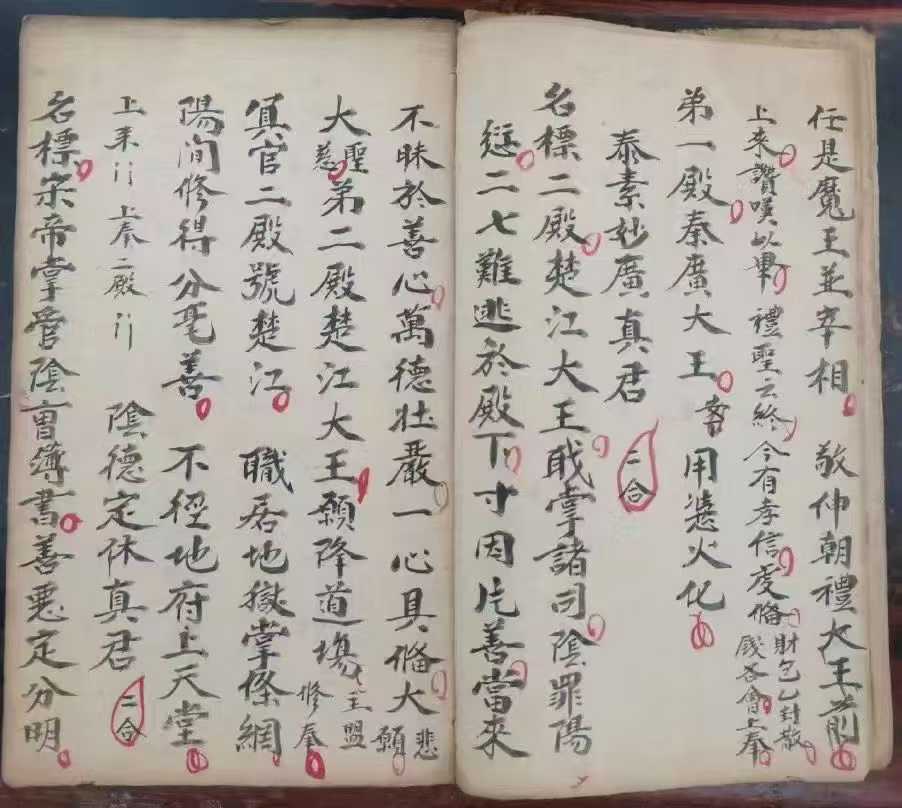 任是魔王並宰相 敬伸朝禮大王前
上來讚嘆以畢 禮聖云終 今有孝信虔俻 財包乙封散
錢各會上奉
弟一殿秦廣大王 用憑火化
泰素妙廣真君 二合
名標二殿楚江大王 职掌諸司陰罪陽
愆二七難逃於殿下寸因片善當來
不昧於善心萬德壮嚴一心具俻大悲願
大聖慈弟二殿楚江大王願降道場主盟修奉
冥官二殿號楚江 職居地獄掌條綱
陽间修得分毫善 不徑地府上天堂
上来 上奉二殿 陰德定休真君 二合
名標宋帝掌管陰曹簿書善悪定分明